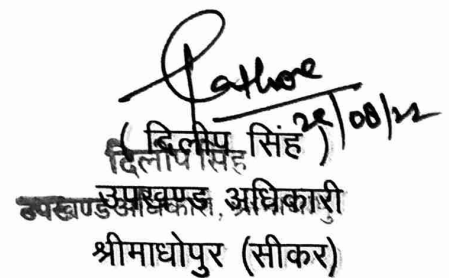 Rathore
22/08/22
(दिलीप सिंह)
दिलीप सिंह
उपखण्ड अधिकारी
उपखण्ड अधिकारी,
श्रीमाधोपुर (सीकर)